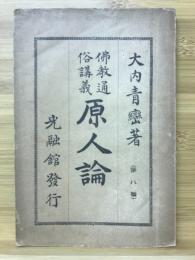 大内青巒著
佛教通
俗講義
原人論
光融館發行